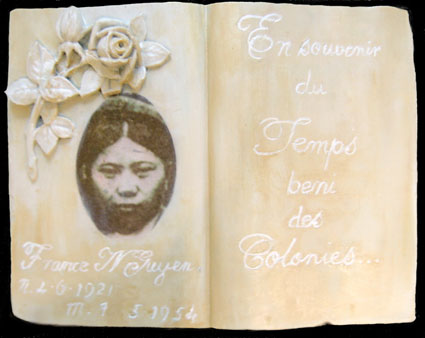 France NGuyen
n. 2.6.1921
m. 7 5 1954
En souvenir
du
Temps
beni
des
Colonies...